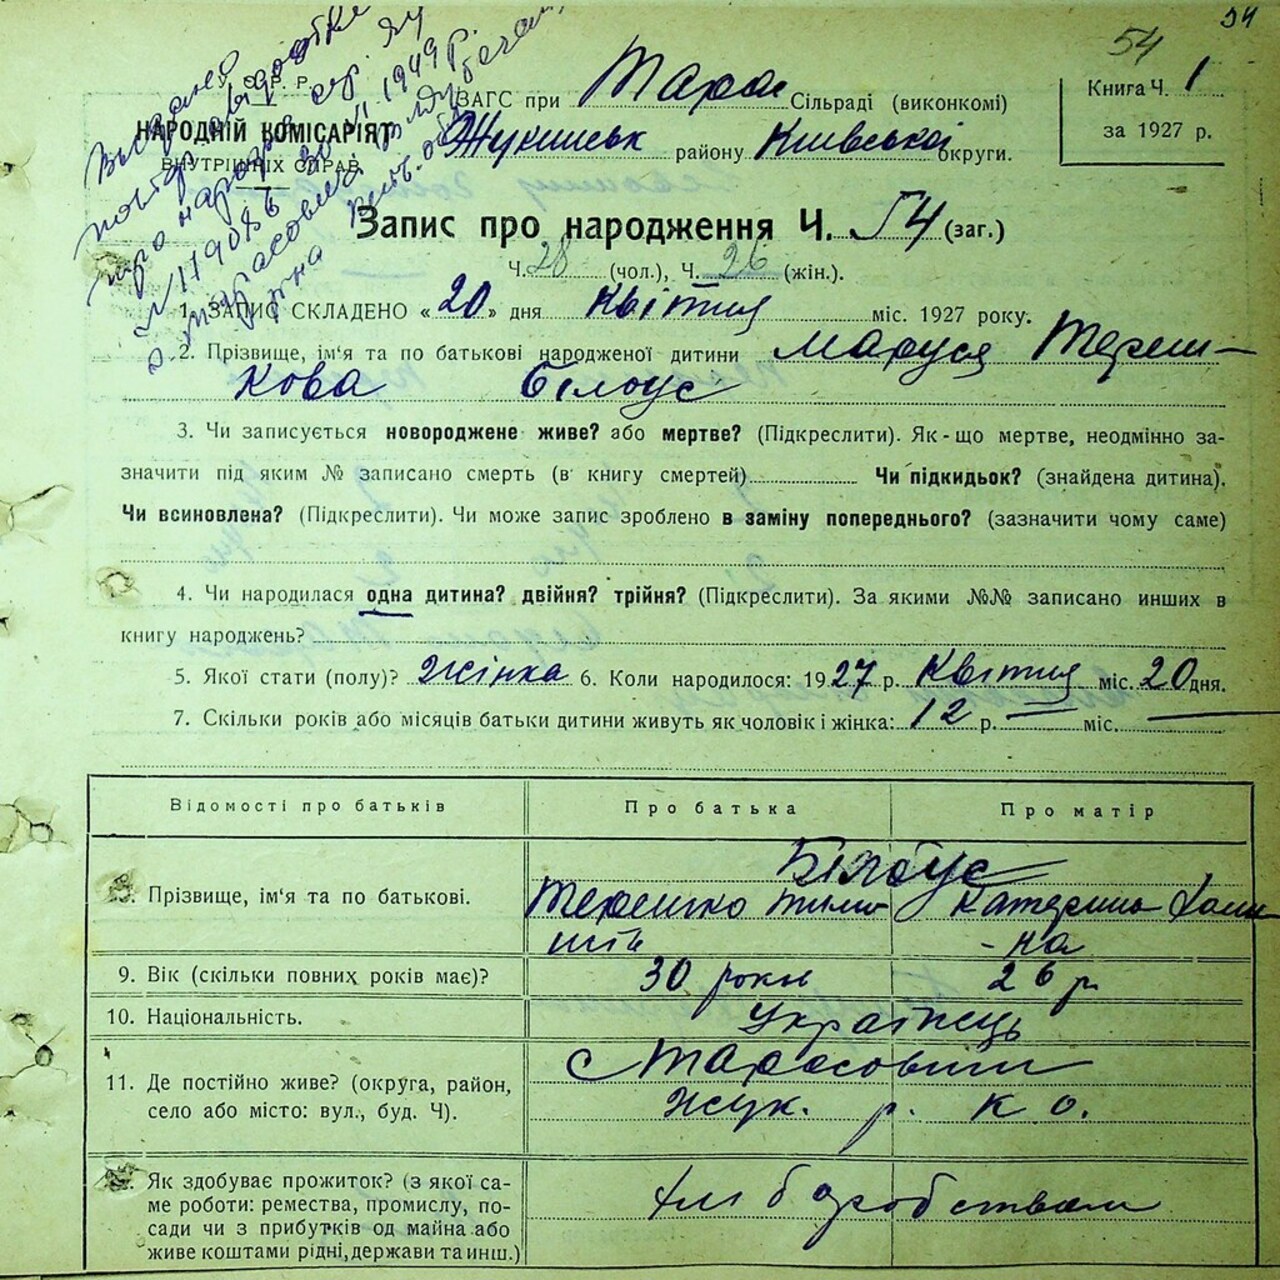 54
54
У. С. Р. Р.
НАРОДНІЙ КОМІСАРІЯТ
ВНУТРІШНІХ СПРАВ
Видано
повтор. свідоцтво
про народж. сер.
№ 119086 30 1949 р.
с. Тарасовичі
ЗАГС при Тарас Сільраді (виконкомі)
Жукинськ району Київської округи.
Книга Ч. 1
за 1927 р.
Запис про народження Ч. 54 (заг.)
Ч. 28 (чол.), Ч. 26 (жін.).
1. ЗАПИС СКЛАДЕНО «20» дня Квітня міс. 1927 року.
2. Прізвище, ім'я та по батькові народженої дитини Маруся Тереш-
кова Білоус
3. Чи записується новороджене живе? або мертве? (Підкреслити). Як-що мертве, неодмінно за-
значити під яким № записано смерть (в книгу смертей) Чи підкидьок? (знайдена дитина).
Чи всиновлена? (Підкреслити). Чи може запис зроблено в заміну попереднього? (зазначити чому саме)
4. Чи народилася одна дитина? двійня? трійня? (Підкреслити). За якими №№ записано инших в
книгу народжень?
5. Якої стати (полу)? Жінка 6. Коли народилося: 1927 р. Квітня міс. 20 дня.
7. Скільки років або місяців батьки дитини живуть як чоловік і жінка: 12 р. — міс. —
Відомості про батьків Про батька Про матір
Білоус
8. Прізвище, ім'я та по батькові. Терешко Тимо- Катерина
шів - на
9. Вік (скільки повних років має)? 30 роки 26 р.
10. Національність. Українець
11. Де постійно живе? (округа, район, с Тарасовичі
село або місто: вул., буд. Ч). Жук. р. К о.
12. Як здобуває прожиток? (з якої са-
ме роботи: ремества, промислу, по- Хліборобством
сади чи з прибутків од майна або
живе коштами рідні, держави та инш.)